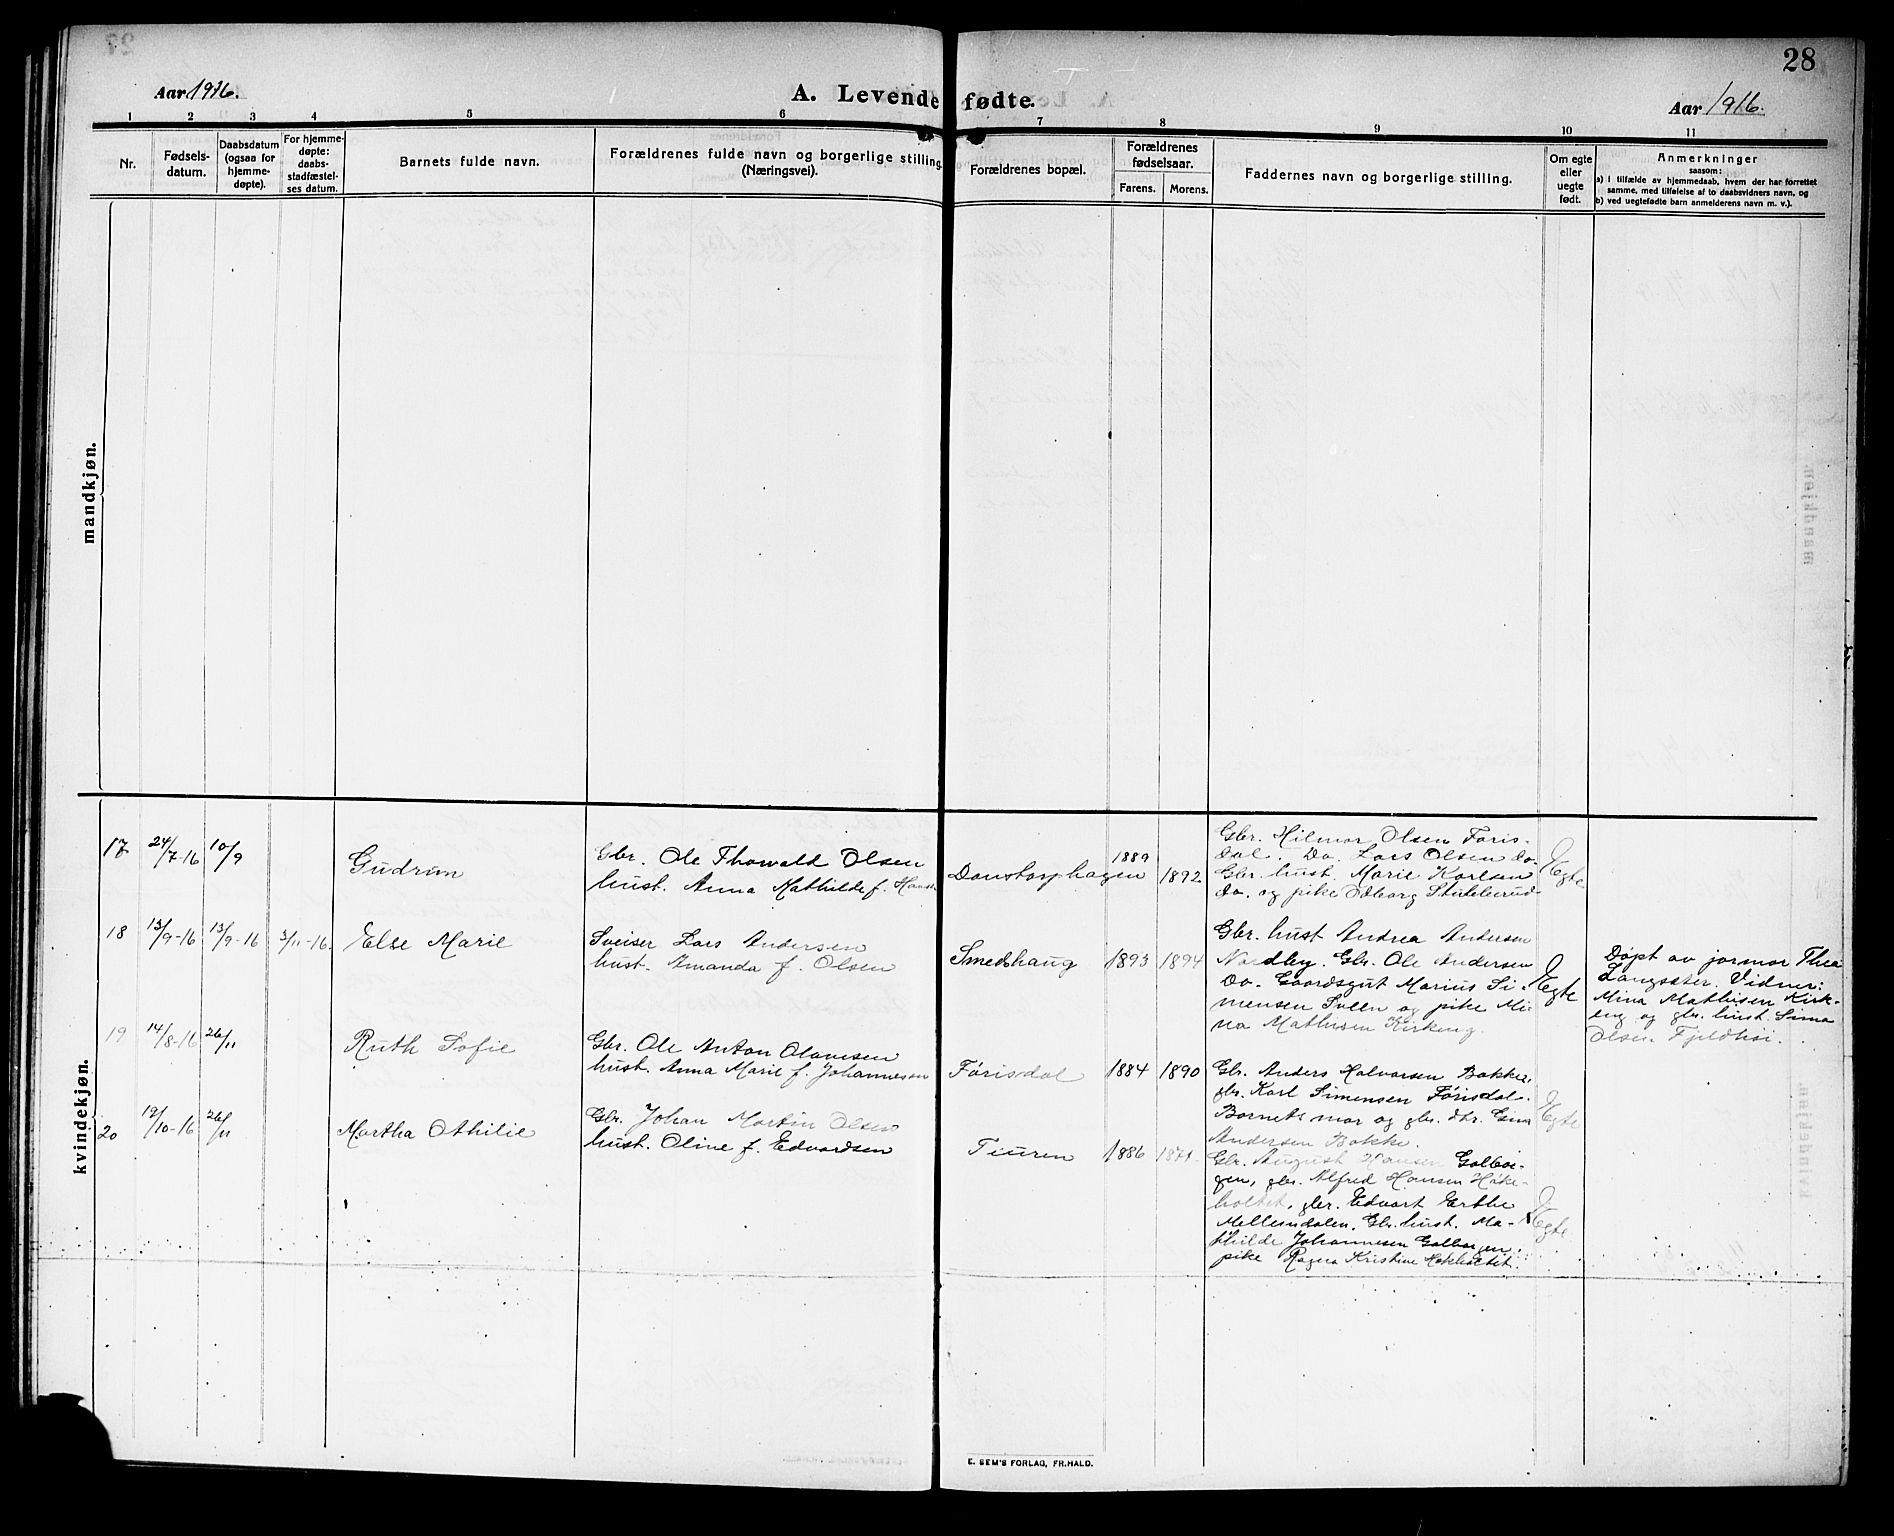 28
Aar 1916.
A. Levende fødte.
Aar 1916.
1 2 3 4 5 6 7 8 9 10 11
Nr.
Fødsels-
datum.
Daabsdatum
(ogsaa for
hjemme-
døpte).
For hjemme-
døpte:
daabs-
stadfæstel-
ses datum.
Barnets fulde navn.
Forældrenes fulde navn og borgerlige stilling
(Næringsvei).
Forældrenes bopæl.
Forældrenes
fødselsaar.
Farens. Morens.
Faddernes navn og borgerlige stilling.
Om egte
eller
uegte
født.
Anmerkninger
saasom:
a) i tilfælde av hjemmedaab, hvem der har forrettet
samme, med tilføielse af to daabsvidners navn, og
b) ved uegtefødte barn anmelderens navn m. v.).
mandkjøn.
kvindekjøn.
17 24/7-16 10/9
Gudrun
Gbr. Ole Thorvald Olsen
hust. Anna Mathilde f.
Danstorphagen
1889
1892
Gbr. Hilmar Olsen Føris-
dal. Do. Lars Olsen do.
Gbr. hust. Marie Karlsen
do. og pike Odborg Stubberud
Egte
18 13/9-16 13/9-16 3/11-16.
Else Marie
Sveiser Lars Andersen
hust. Amanda f. Olsen
Smedshaug
1893 1894
Gbr. hust Andrea Andersen
Nordby. Gbr. Ole Andersen
Do. Gaardsgut Marius Si-
mensen Sveen og pike Mi-
na Mathisen Kirkeng.
Egte
Døpt av jormor Thea
Langsæter. Vidner:
Mina Mathisen Kirk-
eng og gbr. hust. Sima
Olsen Fjeldhøi.
19 14/8-16 26/11
Ruth Sofie
Gbr. Ole Anton Olavesen
hust. Anna Marie f. Johannesen
Førisdal
1884 1890
Gbr. Anders Halvorsen Bakke,
gbr. Karl Simensen Førisdal.
Barnets mor og gbr. dtr.
Andersen Bakke.
Egte
20 19/10-16 26/11
Martha Othilie
Gbr. Johan Martin Olsen
hust. Oline f. Edvardsen
Tiuren
1886 1871.
Gbr. August Hansen Galbor-
gen, gbr. Alfred Hansen Høke-
holtet, gbr. Edvart Erthe
Mellemdalen. Gbr. hust. Ma-
thilde Johannesen Galborgen.
pike Ragna Kristine Høkholtet.
Egte
E. SEM'S FORLAG, FR.HALD.